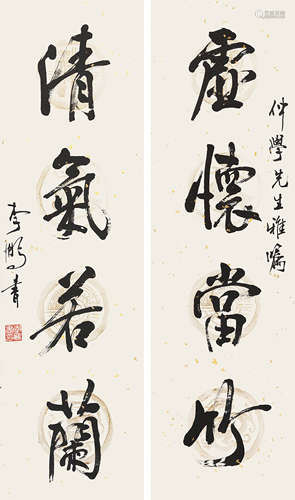 仲學先生雅囑
虛懷當竹
清氣若蘭
李鵬青